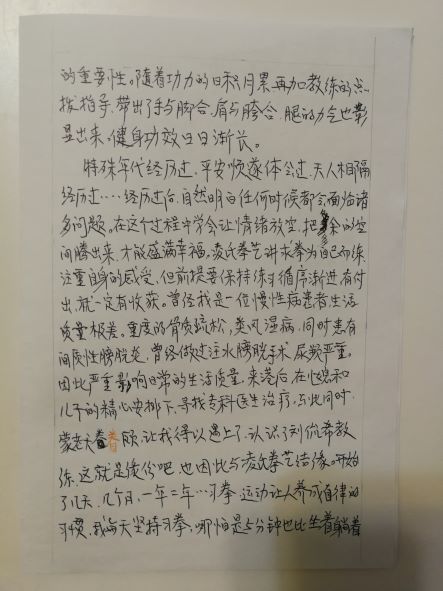 的重要性。随着功力的日积月累再加教练的点
拨指导,带出了手与脚合,肩与胯合,腿的力气也彰
显出来,健身功效日日渐长。
特殊年代经历过,平安顺遂体会过,天人相隔
经历过……经历过后,自然明白任何时候都会面临诸
多问题。在这个过程中学会让情绪放空,把余的空
间腾出来,才能盛满幸福。凌氏拳艺讲求拳为自己而练,
注重自身的感受,但前提要保持练习循序渐进有付
出就一定有收获。曾经我是一位慢性病患者生活
质量极差。重度的骨质疏松,类风湿病,同时患有
间质性膀胱炎,曾经做过注水膀胱手术,尿频严重。
因此严重影响日常的生活质量,来港后,在媳和
儿子的精心安排下,寻找专科医生治疗,与此同时,
蒙老天眷顾,让我得以遇上了,认识了刘佩希教
练,这就是缘份吧,也因此与凌氏拳艺结缘。开始
了几天,几个月,一年二年…习拳,运动让人养成自律的
习惯,我每天坚持习拳,哪怕是5分钟也比坐着躺着